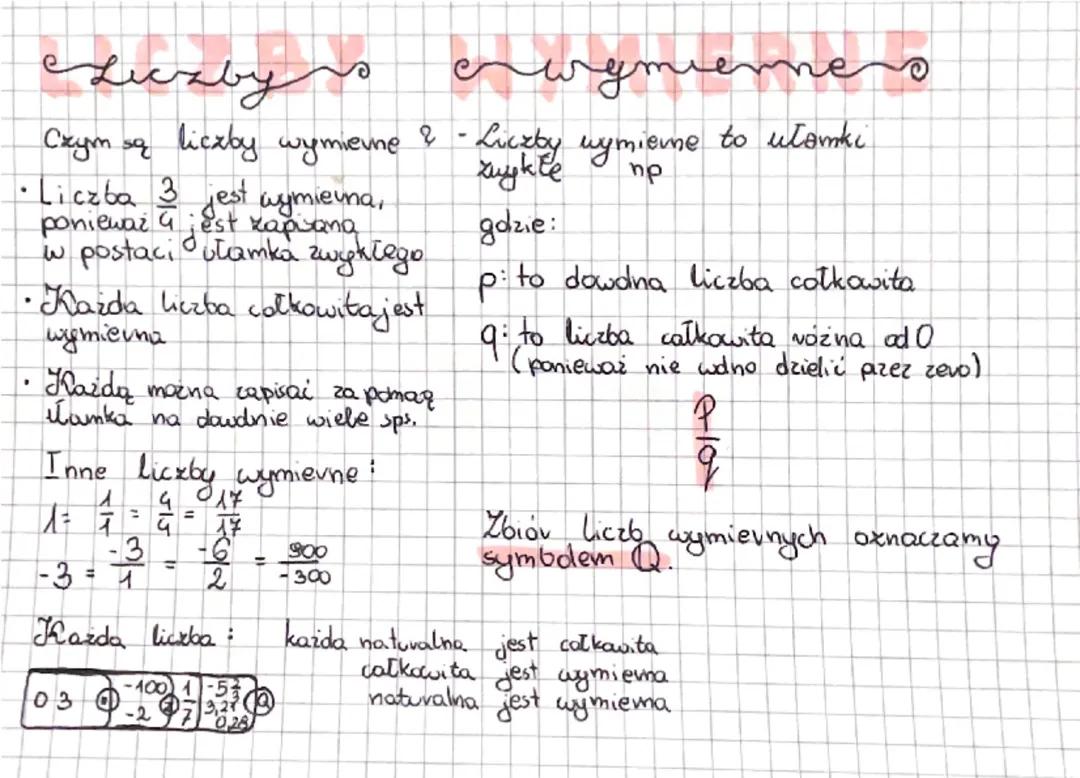 LICZBY WYMIERNE
Liczby wymierne
Czym są liczby wymierne?
• Liczba 3/4 jest wymierna,
ponieważ jest zapisana
w postaci ułamka zwykłego
• Każda liczba całkowita jest
wymierna
• Każdą można zapisać za pomocą
ułamka na dowolnie wiele sps.
Inne liczby wymierne:
1 = 1/1 = 4/4 = 17/17
-3 = -3/1 = -6/2 = 900/-300
- Liczby wymierne to ułamki
zwykłe np
gdzie:
p: to dowolna liczba całkowita
q: to liczba całkowita różna od 0
(ponieważ nie wolno dzielić przez zero)
p/q
Zbiór liczb wymiernych oznaczamy
symbolem Q.
Każda liczba: każda naturalna jest całkowita
całkowita jest wymierna
naturalna jest wymierna
0 3 -100 1/7
-2 3,27 Q
0,28